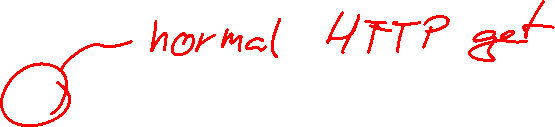 normal HTTP get